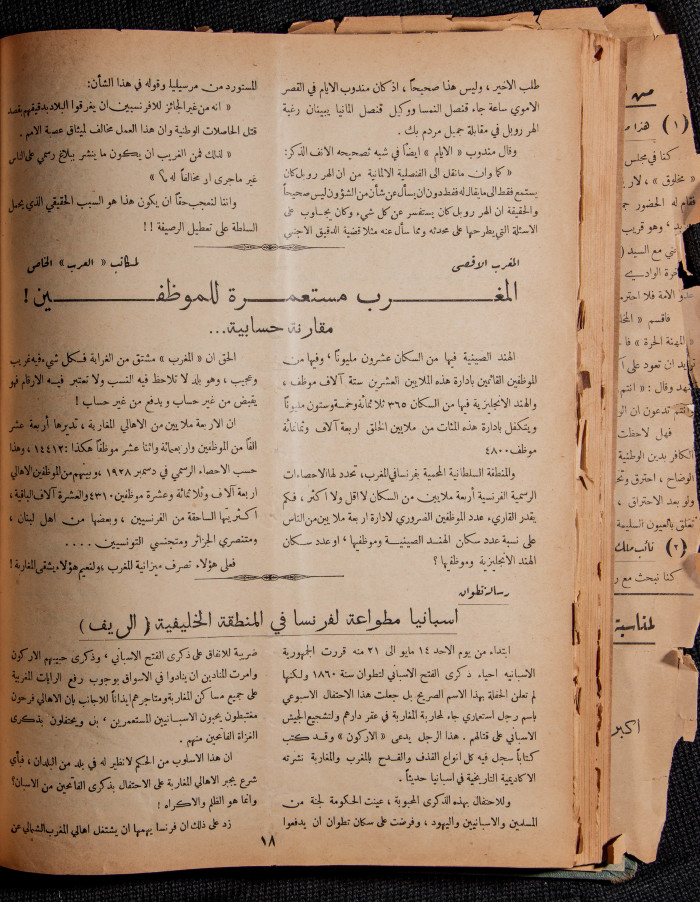 طلب الاخير، وليس هذا صحيحاً، اذ كان مندوب الايام في القصر
الاموي ساعة جاء قنصل النمسا ووكيل قنصل المانيا يبينان رغبة
الهر روبل في مقابلة جميل مردم بك .
وقال مندوب « الايام » ايضاً في شبه تصحيحه الآنف الذكر:
« كما وان ما نقل الى القنصلية الالمانية من ان الهر روبل كان
يستمع فقط الى ما يقال له فقط دون ان يسأل عن شأن من الشؤون ليس صحيحاً
والحقيقة ان الهر روبل كان يستفسر عن كل شيء وكان يجاوب على
الاسئلة التي يطرحها على محدثه ومما سأل عنه مثلا قضية الدقيق الاجنبي
المستورد من مرسيليا وقوله في هذا الشأن:
« انه من غير الجائز للافرنسيين ان يغرقوا البلاد بدقيقهم بقصد
قتل الحاصلات الوطنية وان هذا العمل مخالف لميثاق عصبة الامم .
« لذلك فمن الغريب ان يكون ما ينشر ببلاغ رسمي على الناس
غير ما جرى او مخالفاً له ؟ »
واننا لنتعجب حقاً ان يكون هذا هو السبب الحقيقي الذي يحمل
السلطة على تعطيل الرصيفة !!
المغرب الاقصى
لمكاتب « العرب » الخاص
المغرب مستعمرة للموظفين !
مقارنة حسابية...
الهند الصينية فيها من السكان عشرون مليوناً ، وفيها من
الموظفين القائمين بادارة هذه الملايين العشرين ستة آلاف موظف ،
والهند الانجليزية فيها من السكان ٣٦٥ ثلاثمائة وخمسة وستون مليوناً
ويتكفل بادارة هذه المئات من ملايين الخلق اربعة آلاف وثمانمائة
٤٨٠٠
والمنطقة السلطانية المحمية بفرنسا في المغرب، تحدد لها الاحصاءات
الرسمية الفرنسية أربعة ملايين من السكان لا اقل ولا اكثر ، فكم
يقدر القاريء عدد الموظفين الضروري لادارة اربعة ملايين من الناس
على نسبة عدد سكان الهند الصينية وموظفيها ، او عدد سكان
الهند الانجليزية وموظفيها ؟
الحق ان « المغرب » مشتق من الغرابة فكل شيء فيه غريب
وعجيب ، وهو بلد لا تلاحظ فيه النسب ولا تعتبر فيه الارقام فهو
يقبض من غير حساب ويدفع من غير حساب !
ان الاربعة ملايين من الاهالي المغاربة ، تديرها أربعة عشر
الفاً من الموظفين واربعمائة واثنا عشر موظفاً هكذا : ١٤٤١٢ ، وهذا
حسب الاحصاء الرسمي في دسمبر ١٩٣٨ ، وبينهم من الموظفين الاهالي
اربعة آلاف وثلاثمائة وعشرة موظفين ٤٣١٠ والعشرة آلاف الباقية ،
اكثريتها الساحقة من الفرنسيين ، وبعضها من اهل لبنان ،
ومتنصري الجزائر ومتجنسي التونسيين ....
فعلى هؤلاء تصرف ميزانية المغرب ، ولنعيم هؤلاء يشقى المغاربة !
رسالة تطوان
اسبانيا مطواعة لفرنسا في المنطقة الخليفية ( الريف )
ابتداء من يوم الاحد ١٤ مايو الى ٢١ منه قررت الجمهورية
الاسبانيه احياء ذكرى الفتح الاسباني لتطوان سنة ١٨٦٠ ولكنها
لم تعلن الحفلة بهذا الاسم الصريح بل جعلت هذا الاحتفال الاسبوعي
باسم رجل استعماري جاء لمحاربة المغاربة في عقر دارهم ولتشجيع الجيش
الاسباني على قتالهم . هذا الرجل يدعى « الاركون » وقد كتب
كتاباً سجل فيه كل انواع القذف والقدح بالمغرب والمغاربة نشرته
الاكاديمية التاريخية في اسبانيا حديثاً .
وللاحتفال بهذه الذكرى المحبوبة ، عينت الحكومة لجنة من
المسلمين والاسبانيين واليهود ، وفرضت على سكان تطوان ان يدفعوا
ضريبة للانفاق على ذكرى الفتح الاسباني ، وذكرى حبيبهم الاركون
وامرت المنادين ان ينادوا في الاسواق بوجوب رفع الرايات المغربية
على جميع مساكن المغاربة ومتاجرهم ايذاناً للاجانب بان الاهالي فرحون
مغتبطون يحبون الاسبانيين المستعمرين ، بل ويحتفلون بذكرى
الغزاة الفاتحين منهم .
ان هذا الاسلوب من الحكم لا نظير له في بلد من البلدان ، فبأي
شرع يجبر الاهالي المغاربة على الاحتفال بذكرى الفاتحين من الاسبان؟
وانما هو الظلم والاكراه !
زد على ذلك ان فرنسا يهمها ان يشتغل اهالي المغرب الشمالي عن
١٨
(١) هذا
كنا في مجلس
« مخلوق »
فقام له الحضور
وهو قريب
مع السيد
عدو الامة فلا
فاقسم
« المهنة الحرة »
ان تعود على
وقال : « انتم
تدعون ان
فهل لاحظت
الكافر بدين الوطنية
الوضاح ، احترق
ولو بعد الاحتراق ،
بالعيون السليمة
(٢) نائب ملك
كنا نبحث مع
لمناسبة
اكبر